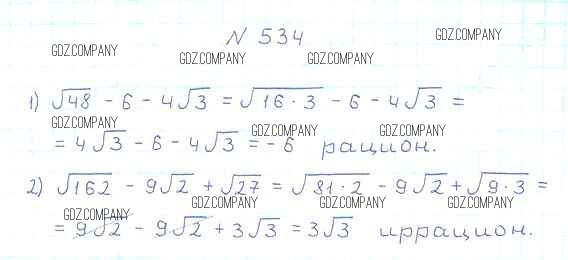 N 534
GDZ.COMPANY GDZ.COMPANY
GDZ.COMPANY GDZ.COMPANY
1) √48 - 6 - 4√3 = √16 · 3 - 6 - 4√3 =
GDZ.COMPANY GDZ.COMPANY GDZ.COMPANY
= 4√3 - 6 - 4√3 = - 6 рацион.
2) √162 - 9√2 + √27 = √81 · 2 - 9√2 + √9 · 3 =
GDZ.COMPANY GDZ.COMPANY GDZ.COMPANY GDZ.COMPANY
= 9√2 - 9√2 + 3√3 = 3√3 иррацион.